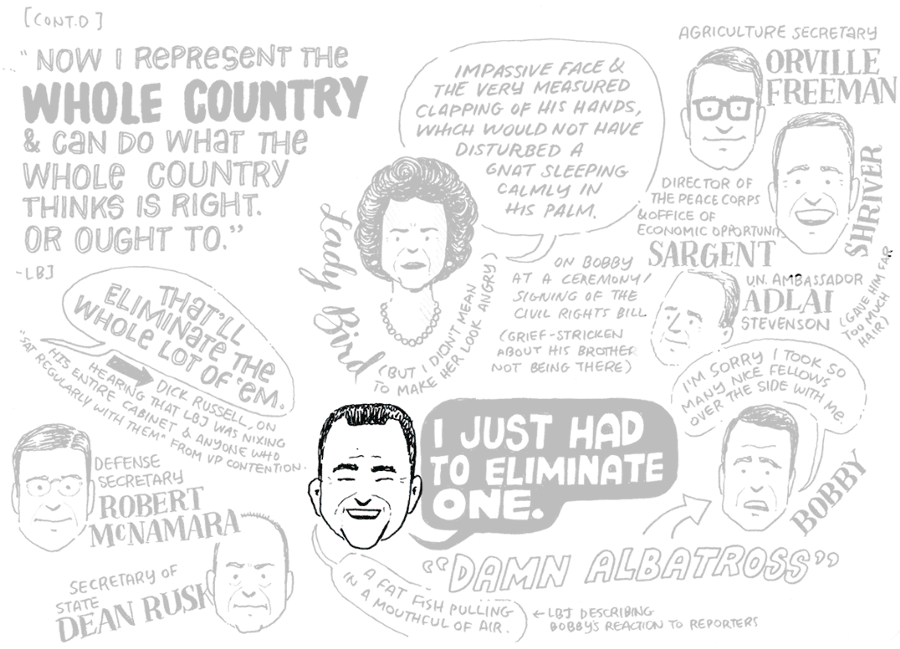 [CONT.D]
"NOW I REPRESENT THE
WHOLE COUNTRY
& CAN DO WHAT THE
WHOLE COUNTRY
THINKS IS RIGHT.
OR OUGHT TO."
-LBJ
IMPASSIVE FACE &
THE VERY MEASURED
CLAPPING OF HIS HANDS,
WHICH WOULD NOT HAVE
DISTURBED A
GNAT SLEEPING
CALMLY IN
HIS PALM.
Lady Bird
(BUT I DIDN'T MEAN
TO MAKE HER LOOK ANGRY)
ON BOBBY
AT A CEREMONY/
SIGNING OF THE
CIVIL RIGHTS BILL
(GRIEF-STRICKEN
ABOUT HIS BROTHER
NOT BEING THERE)
AGRICULTURE SECRETARY
ORVILLE
FREEMAN
DIRECTOR OF
THE PEACE CORPS
& OFFICE OF
ECONOMIC OPPORTUNI
SARGENT
SHRIVER
U.N. AMBASSADOR
ADLAI
STEVENSON
(GAVE HIM FAR
TOO MUCH
HAIR)
THAT'LL
ELIMINATE THE
WHOLE LOT OF 'EM.
DICK RUSSELL, ON
HEARING THAT LBJ WAS NIXING
HIS ENTIRE CABINET & ANYONE WHO
"SAT REGULARLY WITH THEM" FROM VP CONTENTION.
DEFENSE
SECRETARY
ROBERT
MCNAMARA
SECRETARY OF
STATE
DEAN RUSK
I JUST HAD
TO ELIMINATE
ONE.
I'M SORRY I TOOK SO
MANY NICE FELLOWS
OVER THE SIDE WITH ME
BOBBY
"DAMN ALBATROSS"
A FAT FISH PULLING
IN A MOUTHFUL OF AIR.
←LBJ DESCRIBING
BOBBY'S REACTION TO REPORTERS